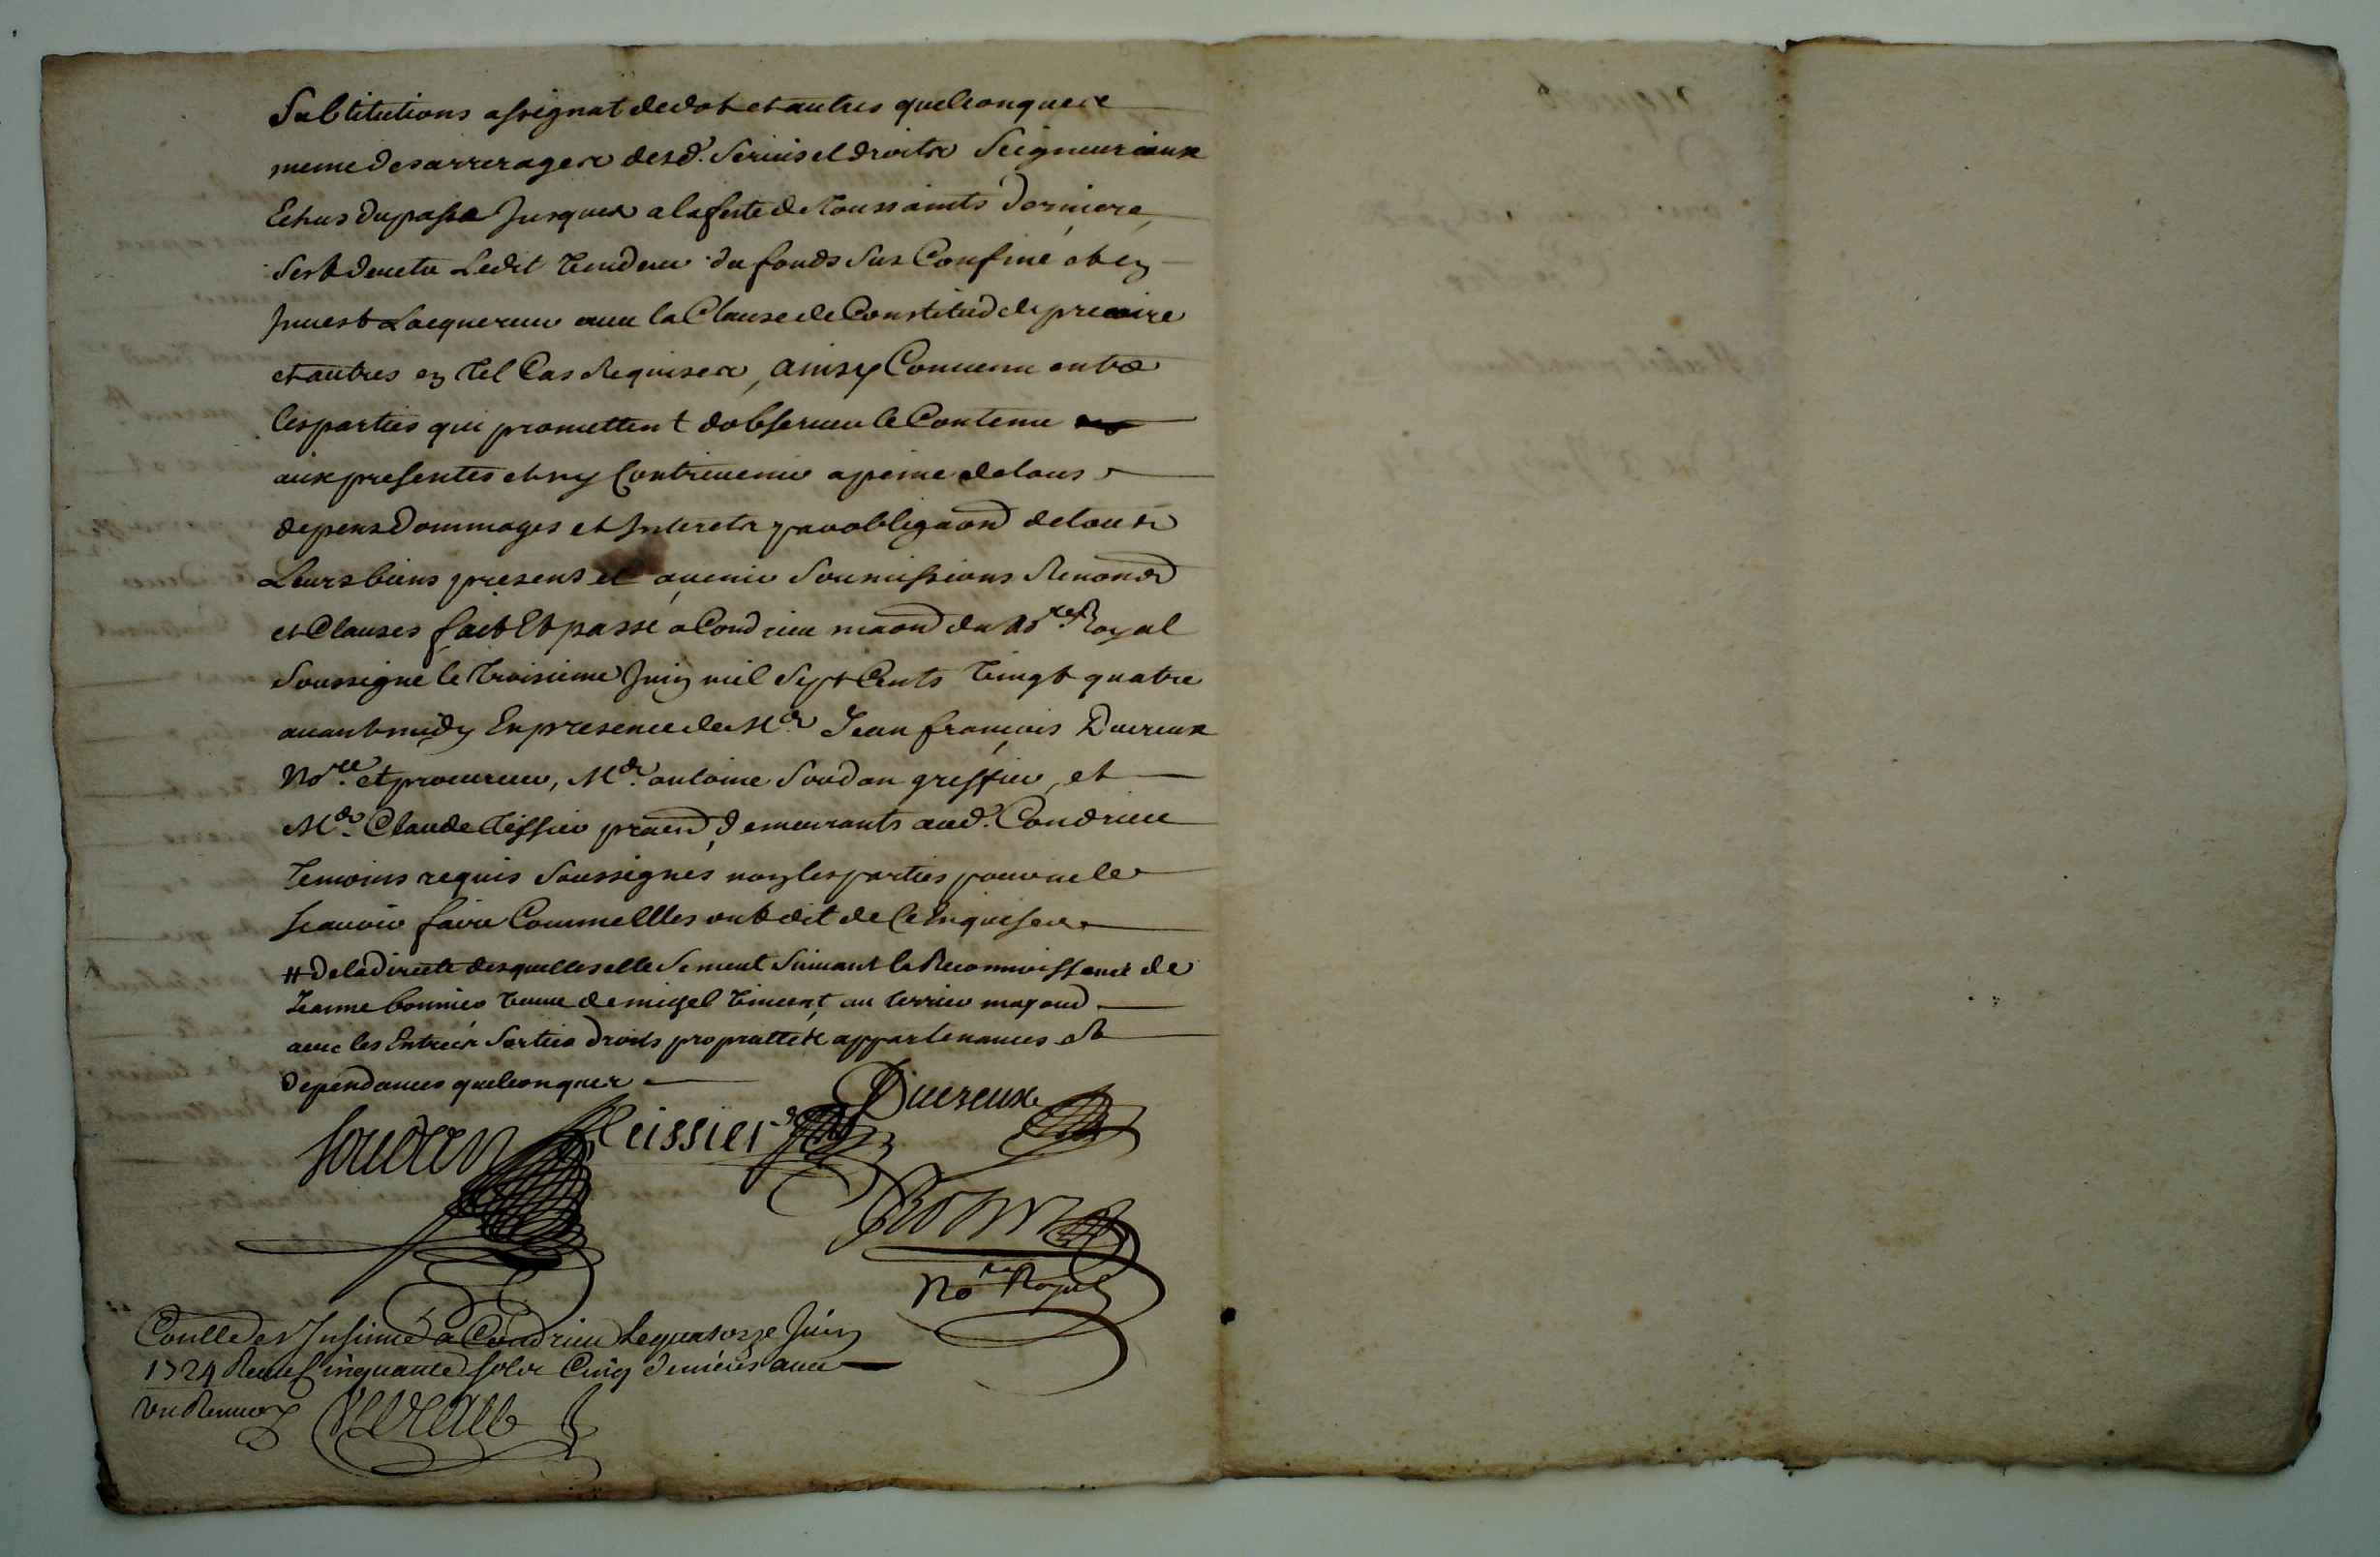 Substitutions assignat de dot et autres quelconques
meme des arrerages desd. Servis et droits Seigneuriaux
Echus du passe Jusques a la feste de toussaints derniere,
Sest devetu Ledit Vendeur du fonds Sus Confiné et en
Invest Lacquereur avec la Clause de Constitud de precaire
et autres en tel Cas Requises, ainsy Convenu entre
les parties qui promettent dobserver le Contenu
aux presentes et ny Contrevenir a peine de tous
depens dommages et Interets par obligaon de tous
Leurs biens presens et avenir Soumissions Renonons
et Clauses fait Et passé a Condrieu maon du Nore Royal
Soussigné le troisieme Juin mil Sept Cents vingt quatre
avant midy En presence de Me Jean françois Ducreux
Nore et procureur, Me antoine Soudan greffier, et
Me Claude Tissier praen, demeurants aud. Condrieu
temoins requis Soussignés non les parties pour ne le
scavoir faire Comme Elles ont dit de ce Enquises
# de la directe desquelles elle se meut Suivant la Reconnoissance de
Jeanne bonnier veuve de michel vincent, au terrier mayoud
avec les Entrées Sorties droits propriettés appartenances et
dependances quelconques
Ducreux
Soudan Teissier
Nore Royal
Conlle et Insinué a Condrieu Le quatorze Juin
1724 Receu Cinquante sols Cinq deniers avec
un Renvoy